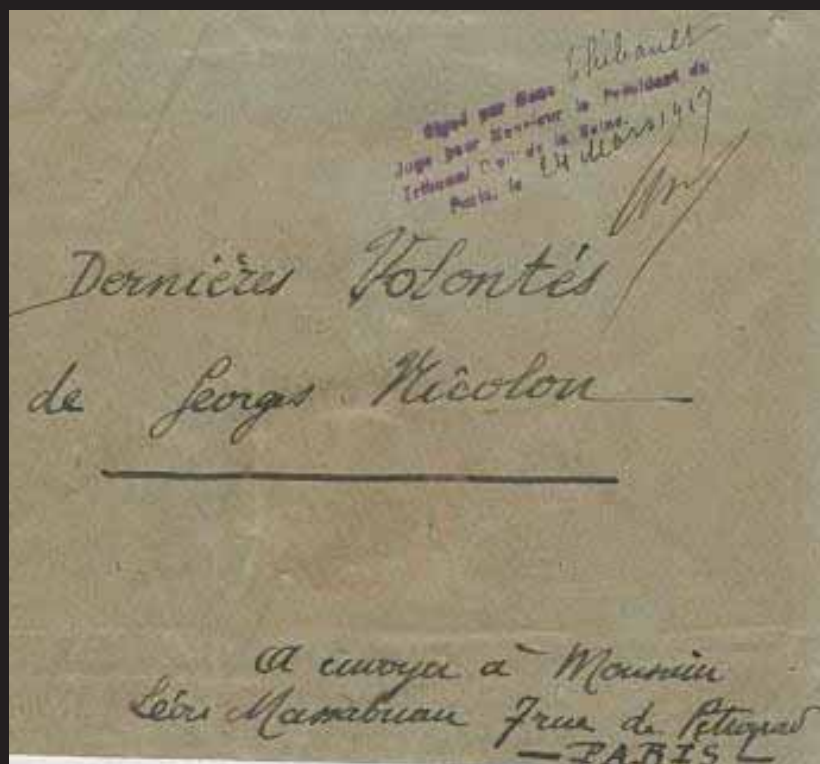 Signé par Nous Thibault
Juge pour Monsieur le Président du
Tribunal Civil de la Seine.
Paris, le 24 Mars 1917
Dernières Volontés
de Georges Nicolon
A envoyer à Monsieur
Léon Massabuau 7 rue de Petrograd
PARIS